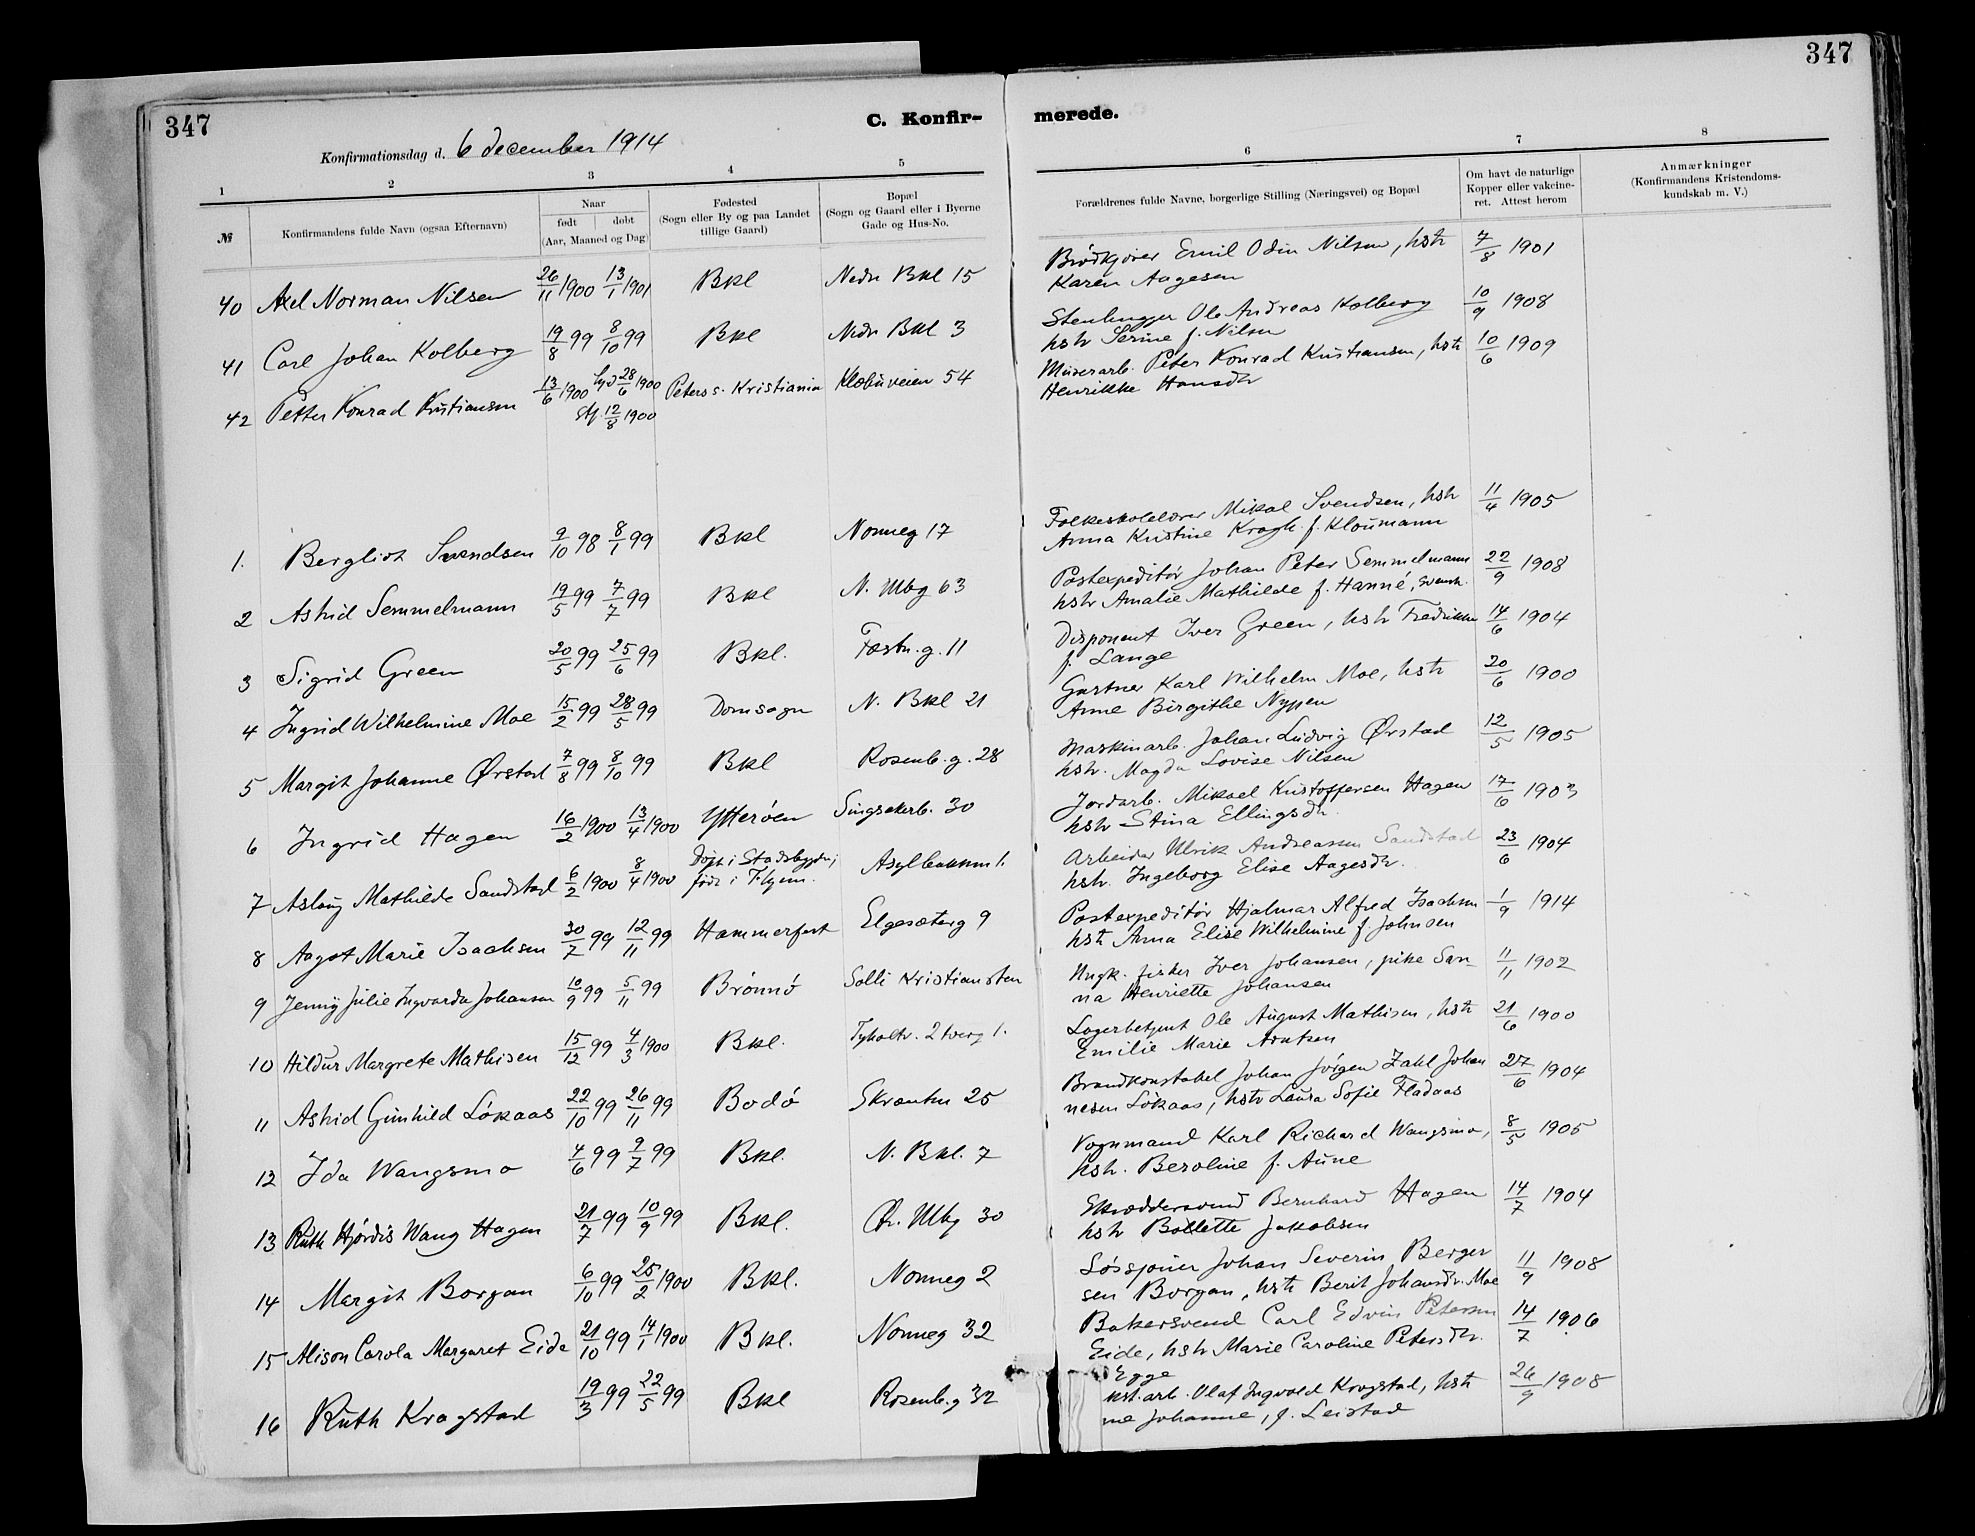 347
347
C. Konfir-
merede.
Konfirmationsdag d. 6 december 1914
1 2 3 4 5 6 7 8
№
Konfirmandens fulde Navn (ogsaa Efternavn)
Naar
født døbt
(Aar, Maaned og Dag)
Fødested
(Sogn eller By og paa Landet
tillige Gaard)
Bopæl
(Sogn og Gaard eller i Byerne
Gade og Hus-No.
Forældrenes fulde Navne, borgerlige Stilling (Næringsvei) og Bopæl
Om havt de naturlige
Kopper eller vakcine-
ret. Attest herom
Anmærkninger
(Konfirmandens Kristendoms-
kundskab m. V.)
40 Axel Norman Nilsen 26/11 1900 13/1 1901 Bkl Nedr Bkl 15 Brødkjører Emil Odin Nilsen, hstr 7/8 1901
Karen Aagesen
41 Carl Johan Kolberg 19/8 99 8/10 99 Bkl Nedr Bkl 3 Stenhugger Ole Andreas Kolberg 10/9 1908
hstr Serine f. Nilsen
42 Petter Konrad Kristiansen 13/6 1900 28/6 1900 Peters s. Kristiania Klæbuveien 54 Murerarb. Peter Konrad Kristiansen, hstr 10/6 1909
stf. 12/8 1900 Henrikke Hansdtr
1. Bergliot Svendsen 9/10 98 8/1 99 Bkl Nonneg 17 Folkeskolelærer Mikal Svendsen, hstr 11/4 1905
Anna Kristine Kragh f. Kloumann
2 Astrid Semmelmann 19/5 99 7/7 99 Bkl N. Mbg 63 Postexpeditør Johan Peter Semmelmann 22/9 1908
hstr Amalie Mathilde f. Hanné, svensk.
3 Sigrid Green 20/5 99 25/6 99 Bkl. Fæstn.g. 11 Disponent Iver Green, hstr Fredrikke 14/6 1904
f. Lange
4 Ingrid Wilhelmine Moe 15/2 99 28/5 99 Domsogn N. Bkl 21 Gartner Karl Wilhelm Moe, hstr 20/6 1900
Anne Birgithe Nypen
5 Margit Johanne Ørstad 7/8 99 8/10 99 Bkl Rosenb.g. 28 Maskinarb. Johan Ludvig Ørstad 12/5 1905
hstr. Magda Lovise Nilsen
6 Ingrid Hagen 16/2 1900 13/4 1900 Ytterøen Singsakerb. 30 Jordarb. Mikael Kristoffersen Hagen 17/6 1903
hstr Stina Ellingsdr.
7 Aslaug Mathilde Sandstad 6/2 1900 8/4 1900 døpt i Stadsbygden; Asylbakken 1. Arbeider Ulrik Andreassen Sandstad 23/6 1904
født i Thjem. hstr. Ingeborg Elise Aagesdr.
8 Aagot Marie Isachsen 30/7 99 12/11 99 Hammerfest Elgesæterg 9 Postexpeditør Hjalmar Alfred Isachsen 1/9 1914
hstr Anna Elise Wilhelmine f. Johnsen
9 Jenny Julie Ingvarda Johansen 10/9 99 5/11 99 Brønnø Solli Kristiansten Ungk. fisker Iver Johansen, pike San- 11/11 1902
na Henriette Johansen
10 Hildur Margrete Mathisen 15/12 99 4/3 1900 Bkl. Tyholtv. 2 tverg 1. Lagerbetjent Ole August Mathisen, hstr 21/6 1900
Emilie Marie Arntsen
11 Astrid Gunhild Løkaas 22/10 99 26/11 99 Bodø Skrænten 25 Brandkonstabel Johan Jørgen Zahl Johan 27/6 1904
nesen Løkaas, hstr Laura Sofie Fladaas
12 Ida Wangsmo 4/6 99 2/7 99 Bkl. N. Bkl. 7 Vognmand Karl Richard Wangsmo, 8/5 1905
hstr. Beroline f. Aune
13 Ruth Hjørdis Wang Hagen 21/7 99 10/9 99 Bkl. Ch. Mbg 30 Skræddersvend Bernhard Hagen 14/7 1904
hstr Bollette Jakobsen
14 Margit Borgan 6/10 99 25/2 1900 Bkl. Nonneg 2 Løssjouer Johan Severin Berger 11/9 1908
sen Borgan, hstr Berit Johansdr. Moe
15 Alison Carola Margaret Eide 21/10 99 14/1 1900 Bkl. Nonneg 32 Bakersvend Carl Edvin Petersen 14/7 1906
Eide, hstr Marie Caroline Petersdr.
Egge
16 Ruth Kragstad 19/3 99 22/5 99 Bkl Rosenb.g 32 arb. Olaf Ingvald Kragstad, hstr 26/9 1908
Johanne, f. Leistad